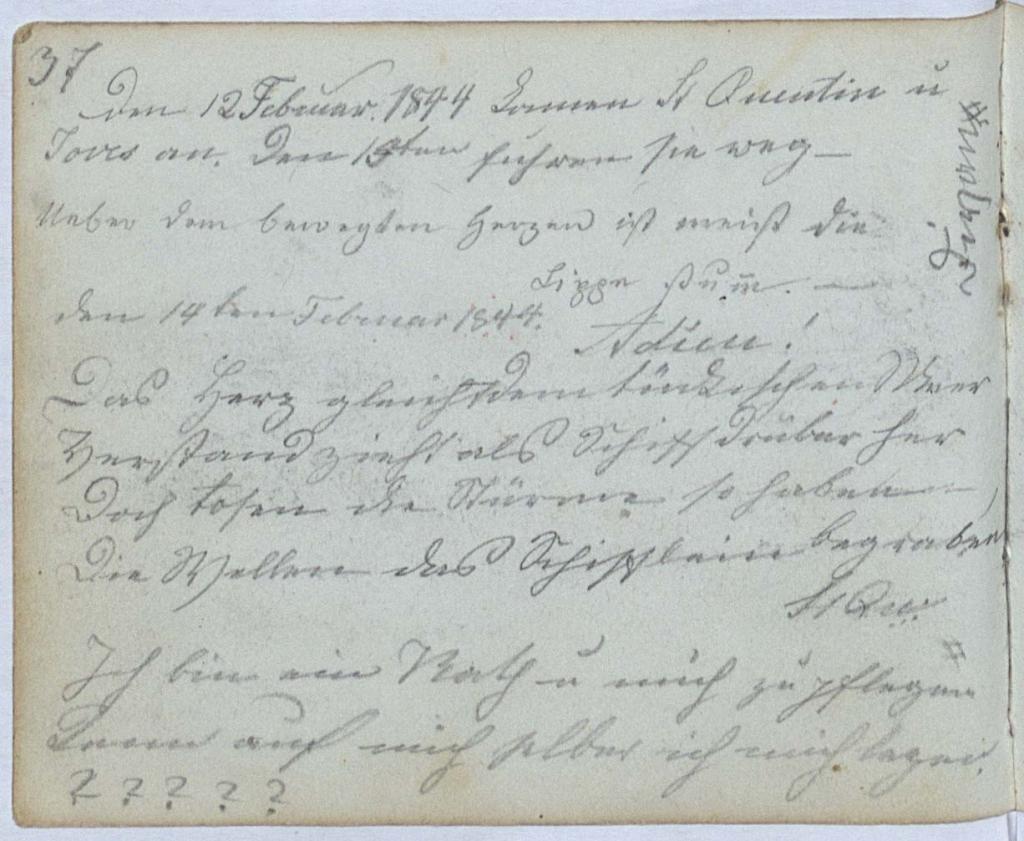 37
Den 12 Februar. 1844 kamen St Quentin u
Joves an. Den 13ten fuhren sie weg —
Ueber dem bewegten Herzen ist meist die
Lippe stum̅. —
den 14ten Februar 1844.
Adieu!
Das Herz gleicht dem tückischen Meer
Verstand zieht als Schiff drüber her
Doch tosen die Stürme so haben —
Die Wellen das Schifflein begraben
St Qu.
Ich bin ein Rath u mich zu pflegen
kann auf mich selber ich mich legen.
? ? ? ? ?